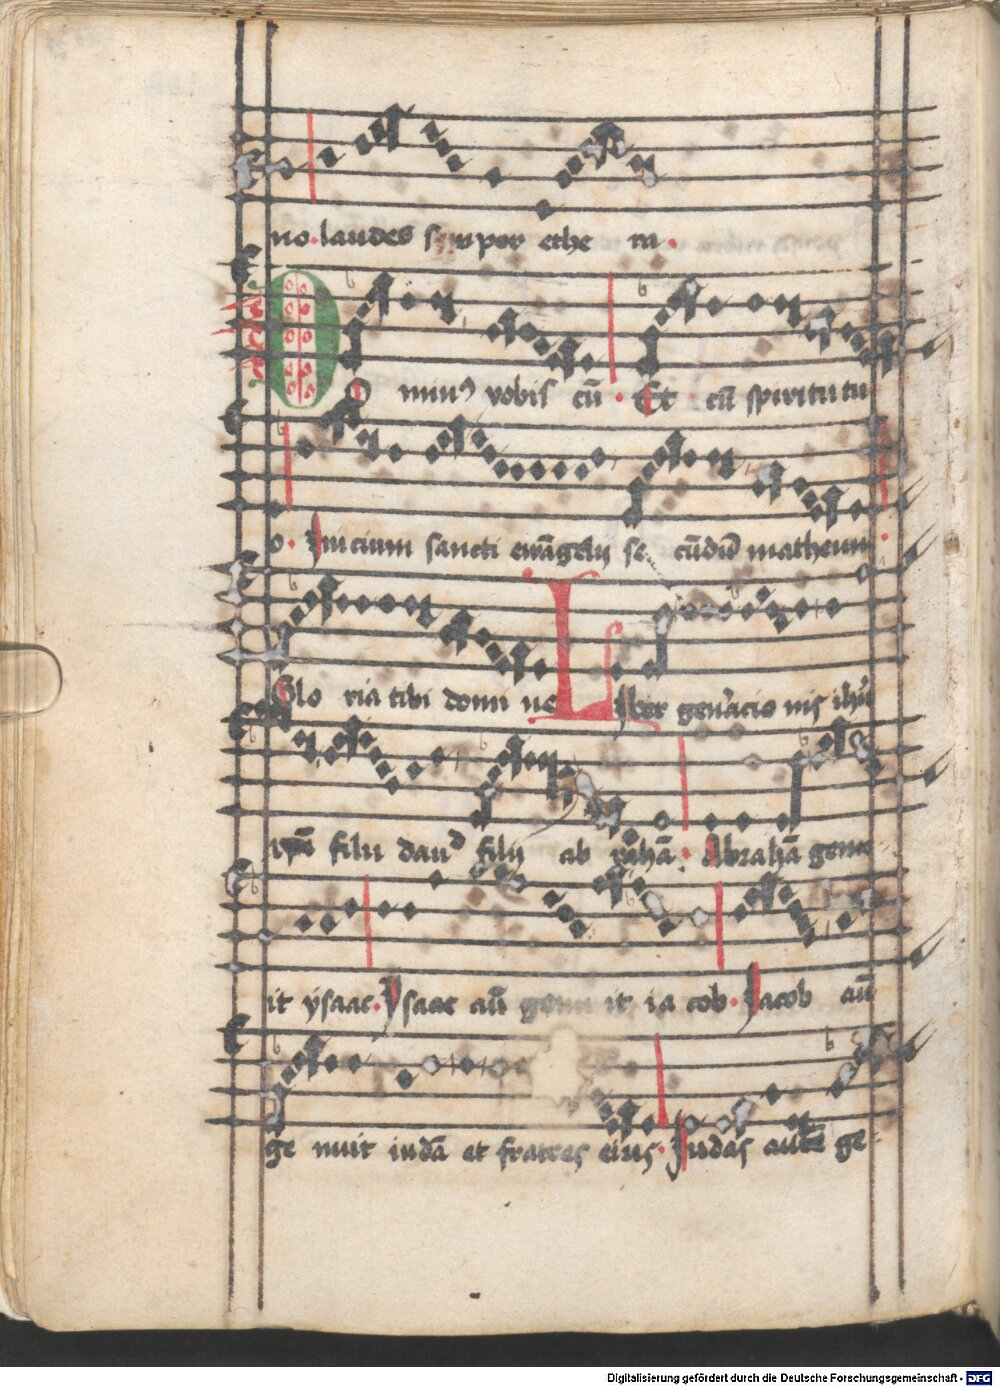 no·laudes semper ethe ra·
Do minꝰ vobis cū· Et cū spiritu tu
o· Inicium sancti ewāgelij se cūdū matheum·
Glo ria tibi domi ne Liber gen̄acio nis ihū
xpī filii dauᵈ filij ab rahā· Abrahā genu
it ysaac· Ysaac aū genu it ia cob· Jacob aū
ge nuit iudā et fratres eius· Judas autē ge
Digitalisierung gefördert durch die Deutsche Forschungsgemeinschaft - DFG